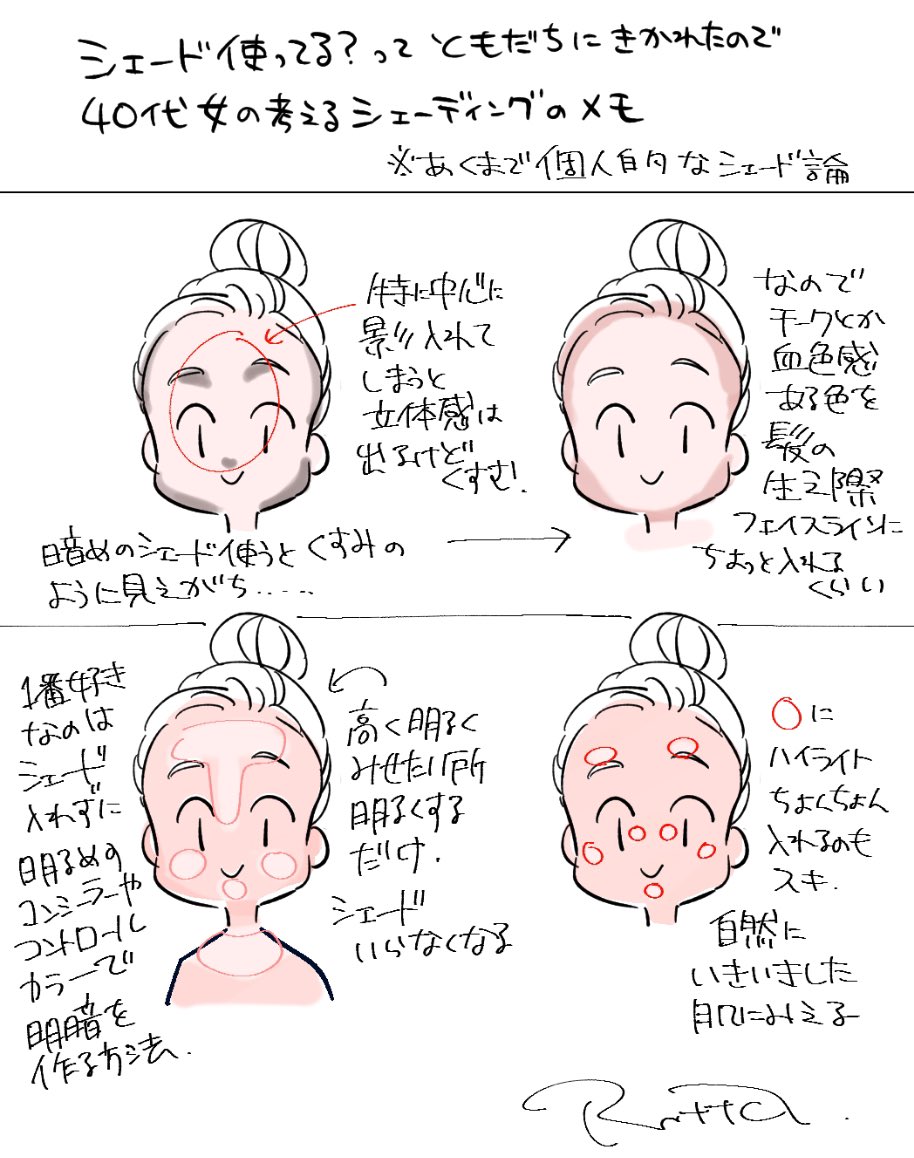 シェード使ってる?って ともだちにきかれたので
40代女の考えるシェーディングのメモ
※あくまで個人的なシェード論
特に中心に
影入れて
しまうと
立体感は
出るけど
くすむ!
暗めのシェード使うとくすみの
ように見えがち.....
なので
チークとか
血色感
ある色を
髪の
生え際
フェイスラインに
ちょっと入れる
くらい
1番好き
なのは
シェード
入れずに
明るめの
コンシーラーや
コントロール
カラーで
明暗を
作る方法、
高く明るく
みせたい所
明るくする
だけ.
シェード
いらなくなる
○に
ハイライト
ちょんちょん
入れるのも
スキ.
自然に
いきいきした
肌にみえる